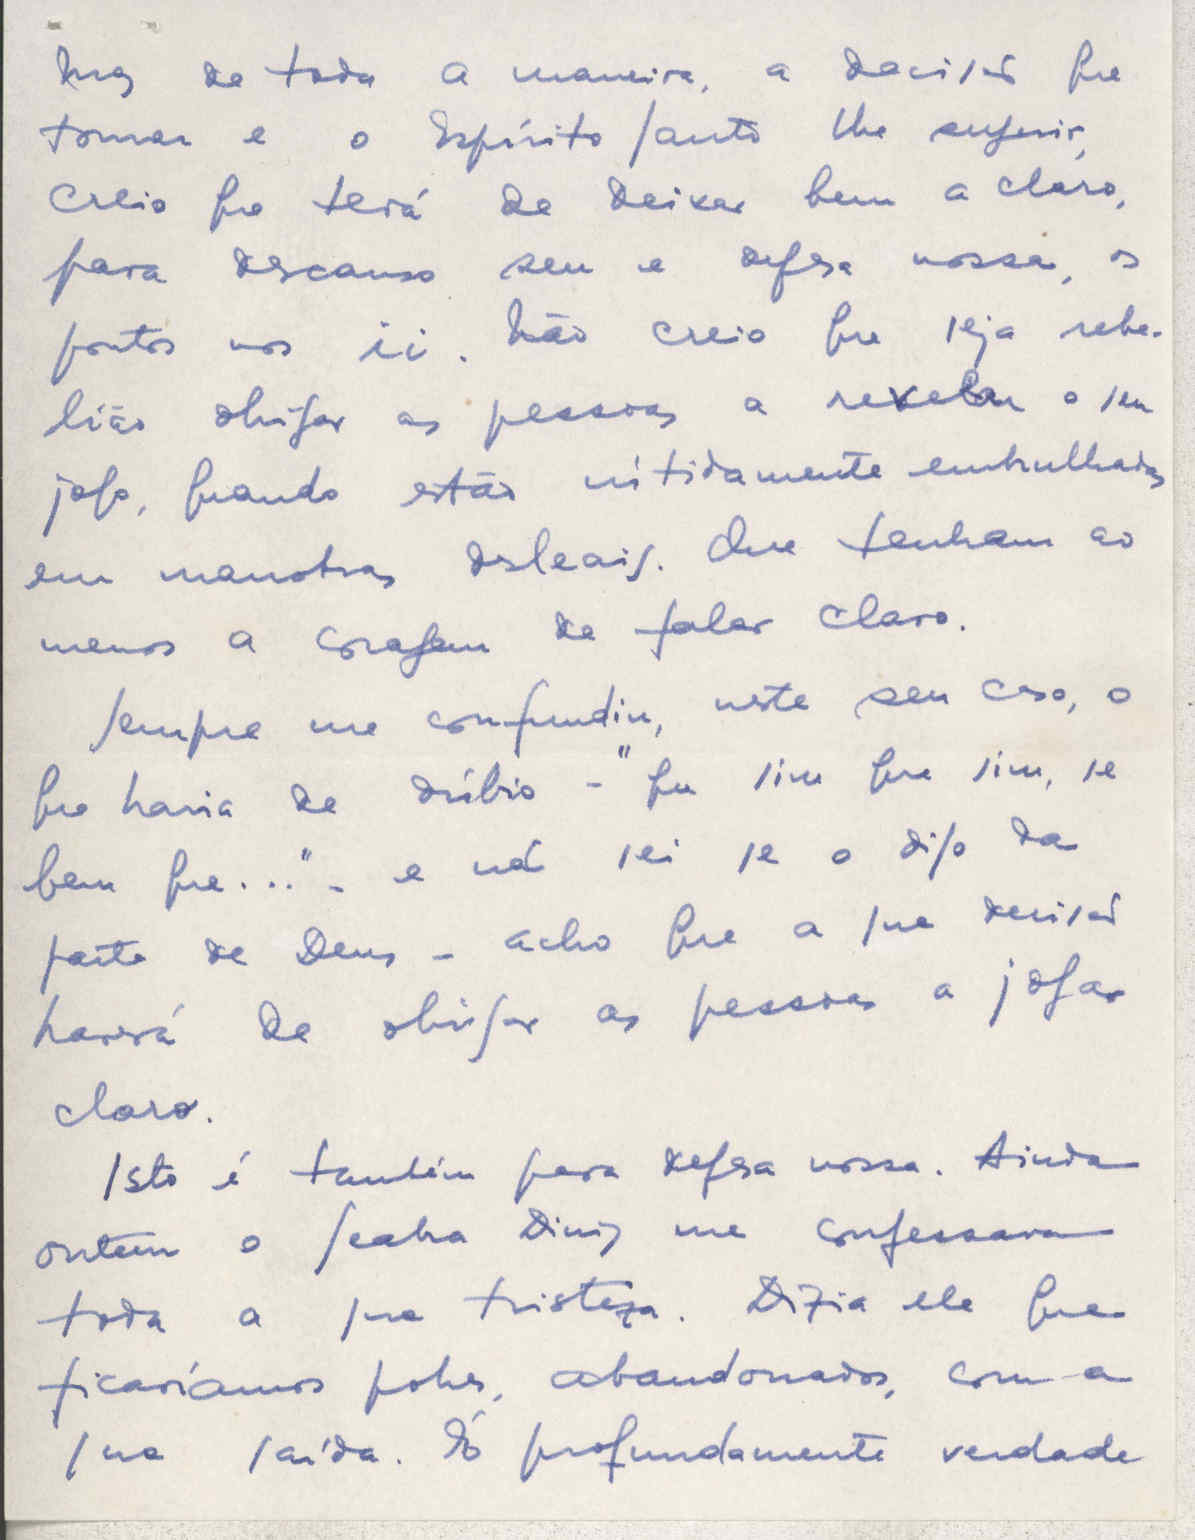 Mas de toda a maneira, a decisão que
tomar e o Espírito Santo lhe sugerir,
creio que terá de deixar bem a claro,
para descanso seu e defesa nossa, os
pontos nos ii. Não creio que seja rebe-
lião obrigar as pessoas a revelar o seu
jogo, quando estão nítidamente embrulhadas
em manobras desleais. Que tenham ao
menos a coragem de falar claro.
Sempre me confundiu, neste seu caso, o
que havia de dúbio - "que sim que sim, se
bem que..." - e não sei se o digo da
parte de Deus - acho que a sua decisão
haverá de obrigar as pessoas a jogar
claro.
Isto é também para defesa nossa. Ainda
ontem o Seabra Diniz me confessava
toda a sua tristeza. Dizia ele que
ficaríamos pobres, abandonados, com a
sua saída. É profundamente verdade